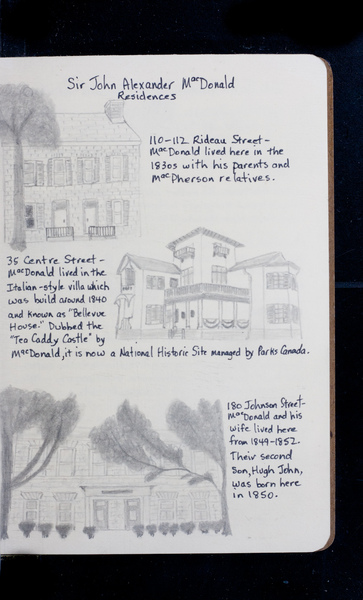 Sir John Alexander MacDonald
Residences
110-112 Rideau Street-
MacDonald lived here in the
1830s with his parents and
MacPherson relatives.
35 Centre Street-
MacDonald lived in the
Italian-style villa which
was build around 1840
and known as "Bellevue
House." Dubbed the
"Tea Caddy Castle" by
MacDonald, it is now a National Historic Site managed by Parks Canada.
180 Johnson Street-
MacDonald and his
wife lived here
from 1849-1852.
Their second
son, Hugh John,
was born here
in 1850.